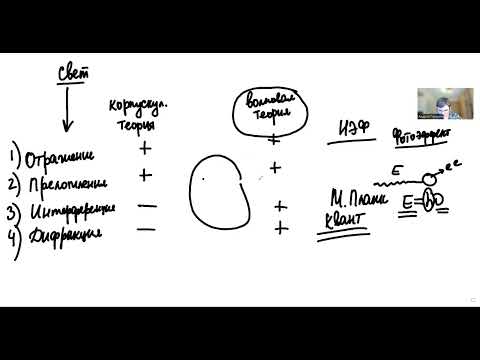 свет
корпускул.
теория
волновая
теория
ИЭФ
Фотоэффект
1) Отражение + +
2) Преломление + +
3) Интерференция — +
4) Дифракция — +
E
e e
М. Планк
Квант
E=hν